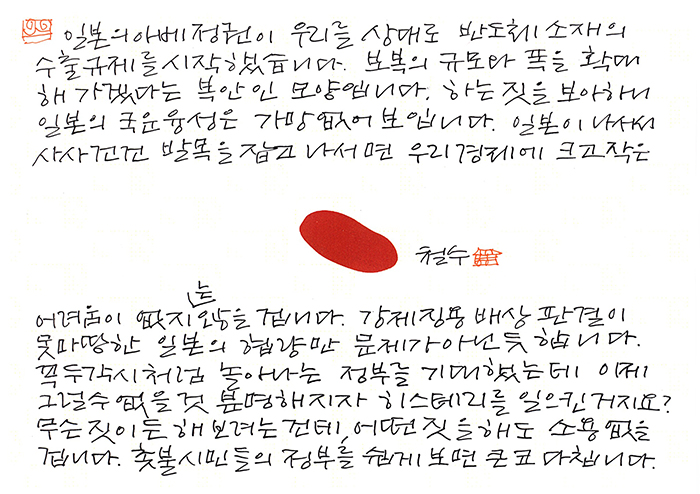 일본의 아베 정권이 우리를 상대로 반도체 소재의
수출규제를 시작했습니다. 보복의 규모와 폭을 확대
해 가겠다는 복안인 모양입니다. 하는 짓을 보아하니
일본의 국운융성은 가망 없어 보입니다. 일본이 나서서
사사건건 발목을 잡고 나서면 우리 경제에 크고 작은
철수
는
어려움이 없지 않을 겁니다. 강제징용 배상 판결이
못마땅한 일본의 협량만 문제가 아닌 듯 합니다.
꼭두각시처럼 놀아나는 정부를 기대했는데 이제
그럴 수 없을 것 분명해지자 히스테리를 일으킨 거지요?
무슨 짓이든 해보려는 건데, 어떤 짓을 해도 소용 없을
겁니다. 촛불시민들의 정부를 쉽게 보면 큰 코 다칩니다.